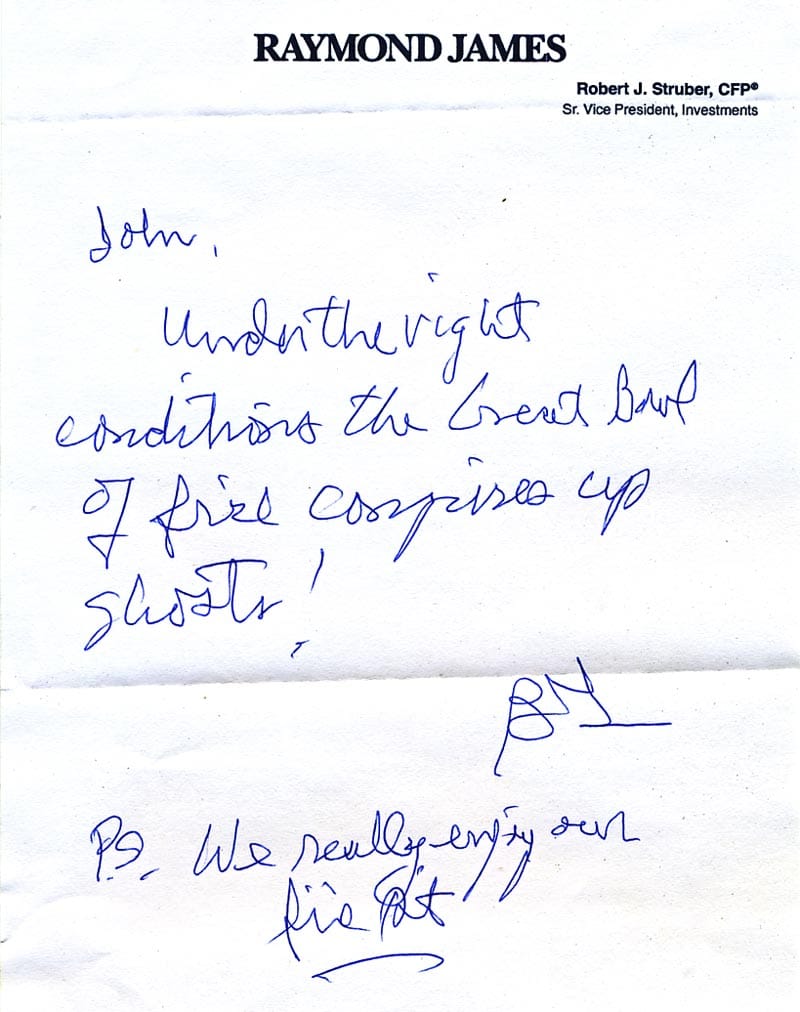 RAYMOND JAMES
Robert J. Struber, CFP®
Sr. Vice President, Investments
John,
Under the right
conditions the Great Bowl
of fire conjures up
ghosts!
P.S. We really enjoy our
fire Pit